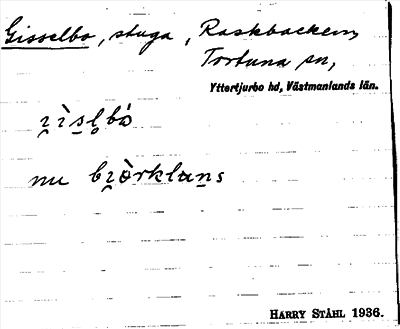 Gisselbo, stuga, Raskbacken,
Tortuna sn,
Yttertjurbo hd, Västmanlands län.
i̯ìsl̥bó
nu bi̯òrklans
HARRY STÅHL 1936.